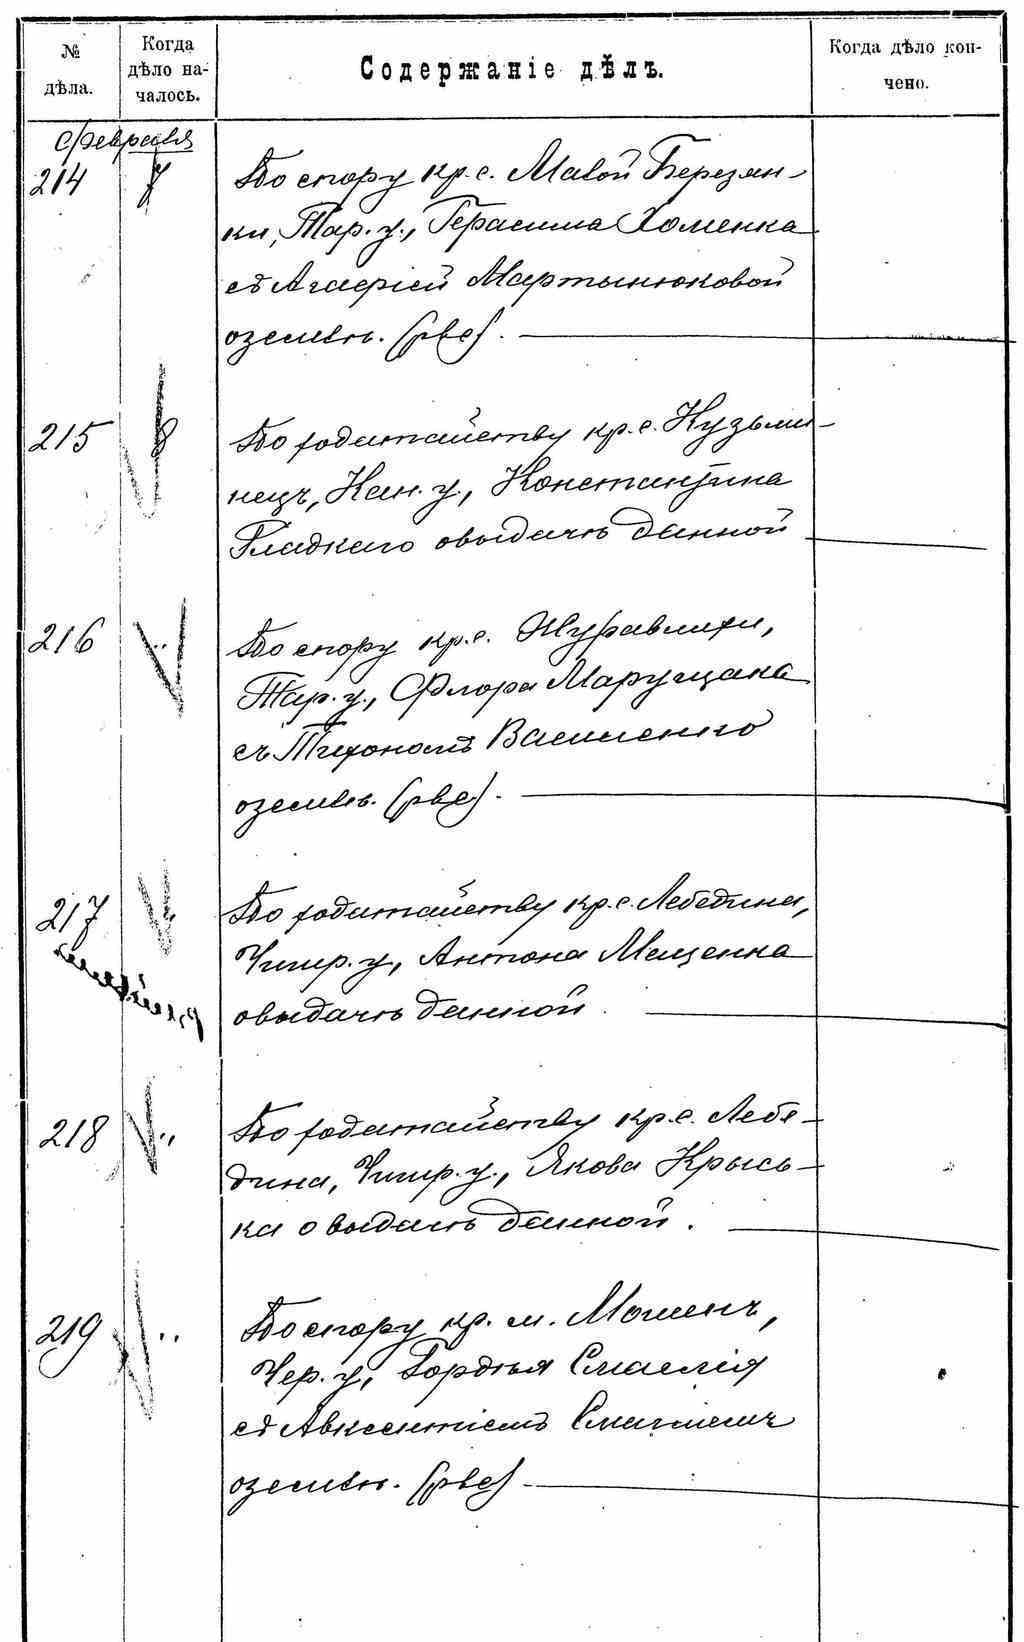 № дѣла.
Когда дѣло на-
чалось.
Содержаніе дѣлъ.
Когда дѣло кон-
чено.
Февраля
214 7 По спору кр. с. Малой Березян-
ки, Тар. у., Герасима Хоменка
съ Агафіей Мартынюковой
о землѣ. (рве). —
215 8 По ходатайству кр. с. Кузьми-
нецъ, Кан. у., Константина
Гладкаго о выдачѣ данной —
216 „ По спору кр. с. Журавлихи,
Тар. у., Флора Марущака
съ Тихономъ Василенко
о землѣ. (рве). —
217 „ По ходатайству кр. с. Лебедина,
Чигир. у., Антона Мащенка
о выдачѣ данной. —
218 „ По ходатайству кр. с. Лебе-
дина, Чигир. у., Якова Крысь-
ка о выдачѣ данной. —
219 „ По спору кр. м. Мошенъ,
Чер. у., Гордѣя Смаглія
съ Авксентіемъ Смаглiемъ
о землѣ. (рве) —